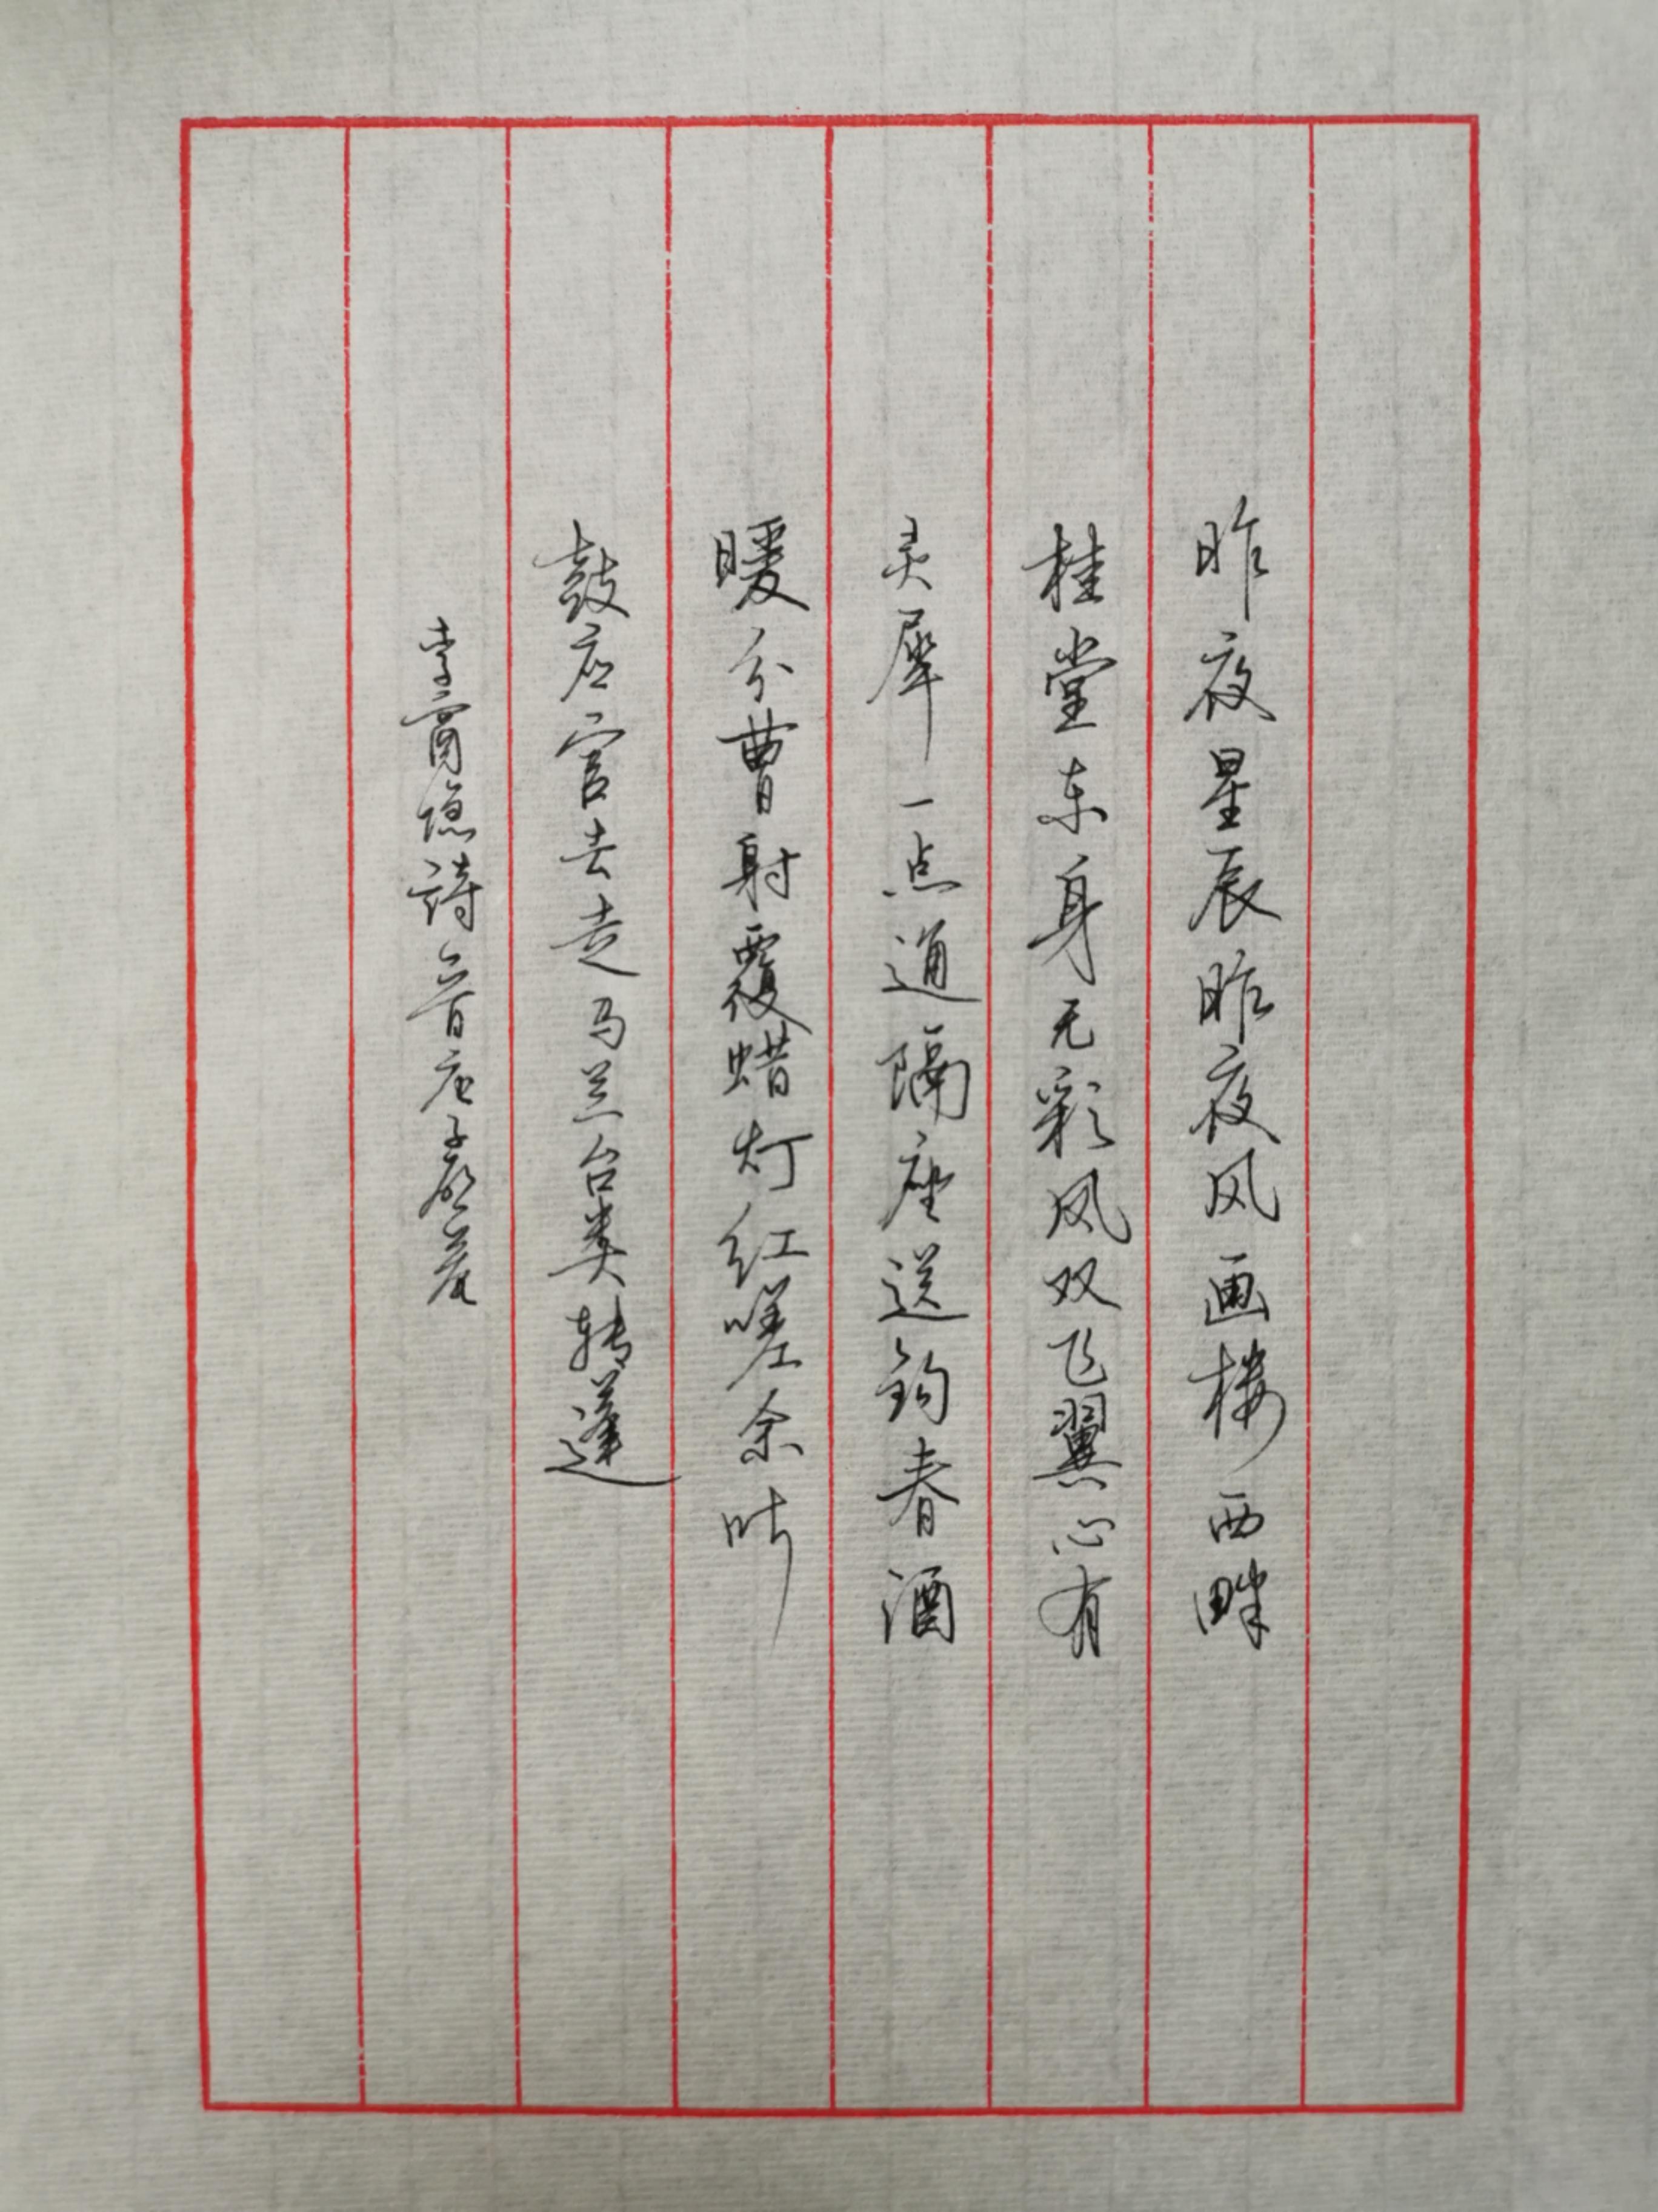 昨夜星辰昨夜风画楼西畔
桂堂东身无彩凤双飞翼心有
灵犀一点通隔座送钩春酒
暖分曹射覆蜡灯红嗟余听
鼓应官去走马兰台类转蓬
李商隐詩一首庚子